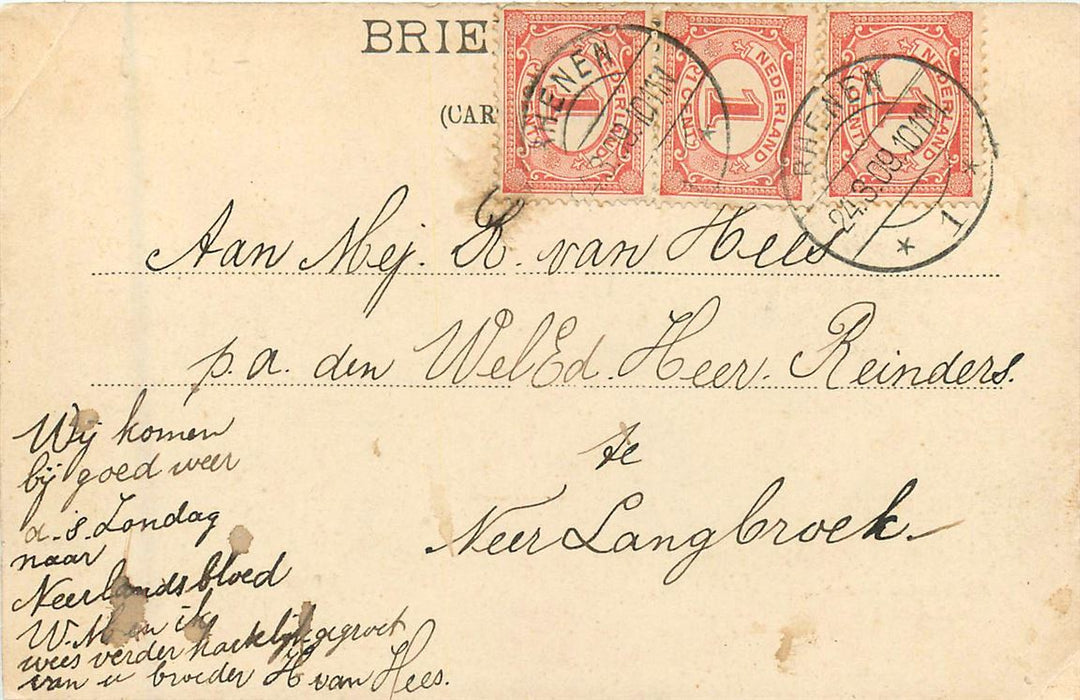 BRIE
(CAR
NEDERLAND 1 CENT
NEDERLAND 1 CENT
NEDERLAND 1 CENT
RHENEN 10-11V
RHENEN 24.3.09.10-11V 1
Aan Mej. R. van Hees
p.a. den WelEd. Heer. Reinders.
te
Neer Langbroek.
Wij komen
bij goed weer
a.s. Zondag
naar
Neerlandsbloed
W.M en ik
wees verder hartelijk gegroet
van u broeder H van Hees.